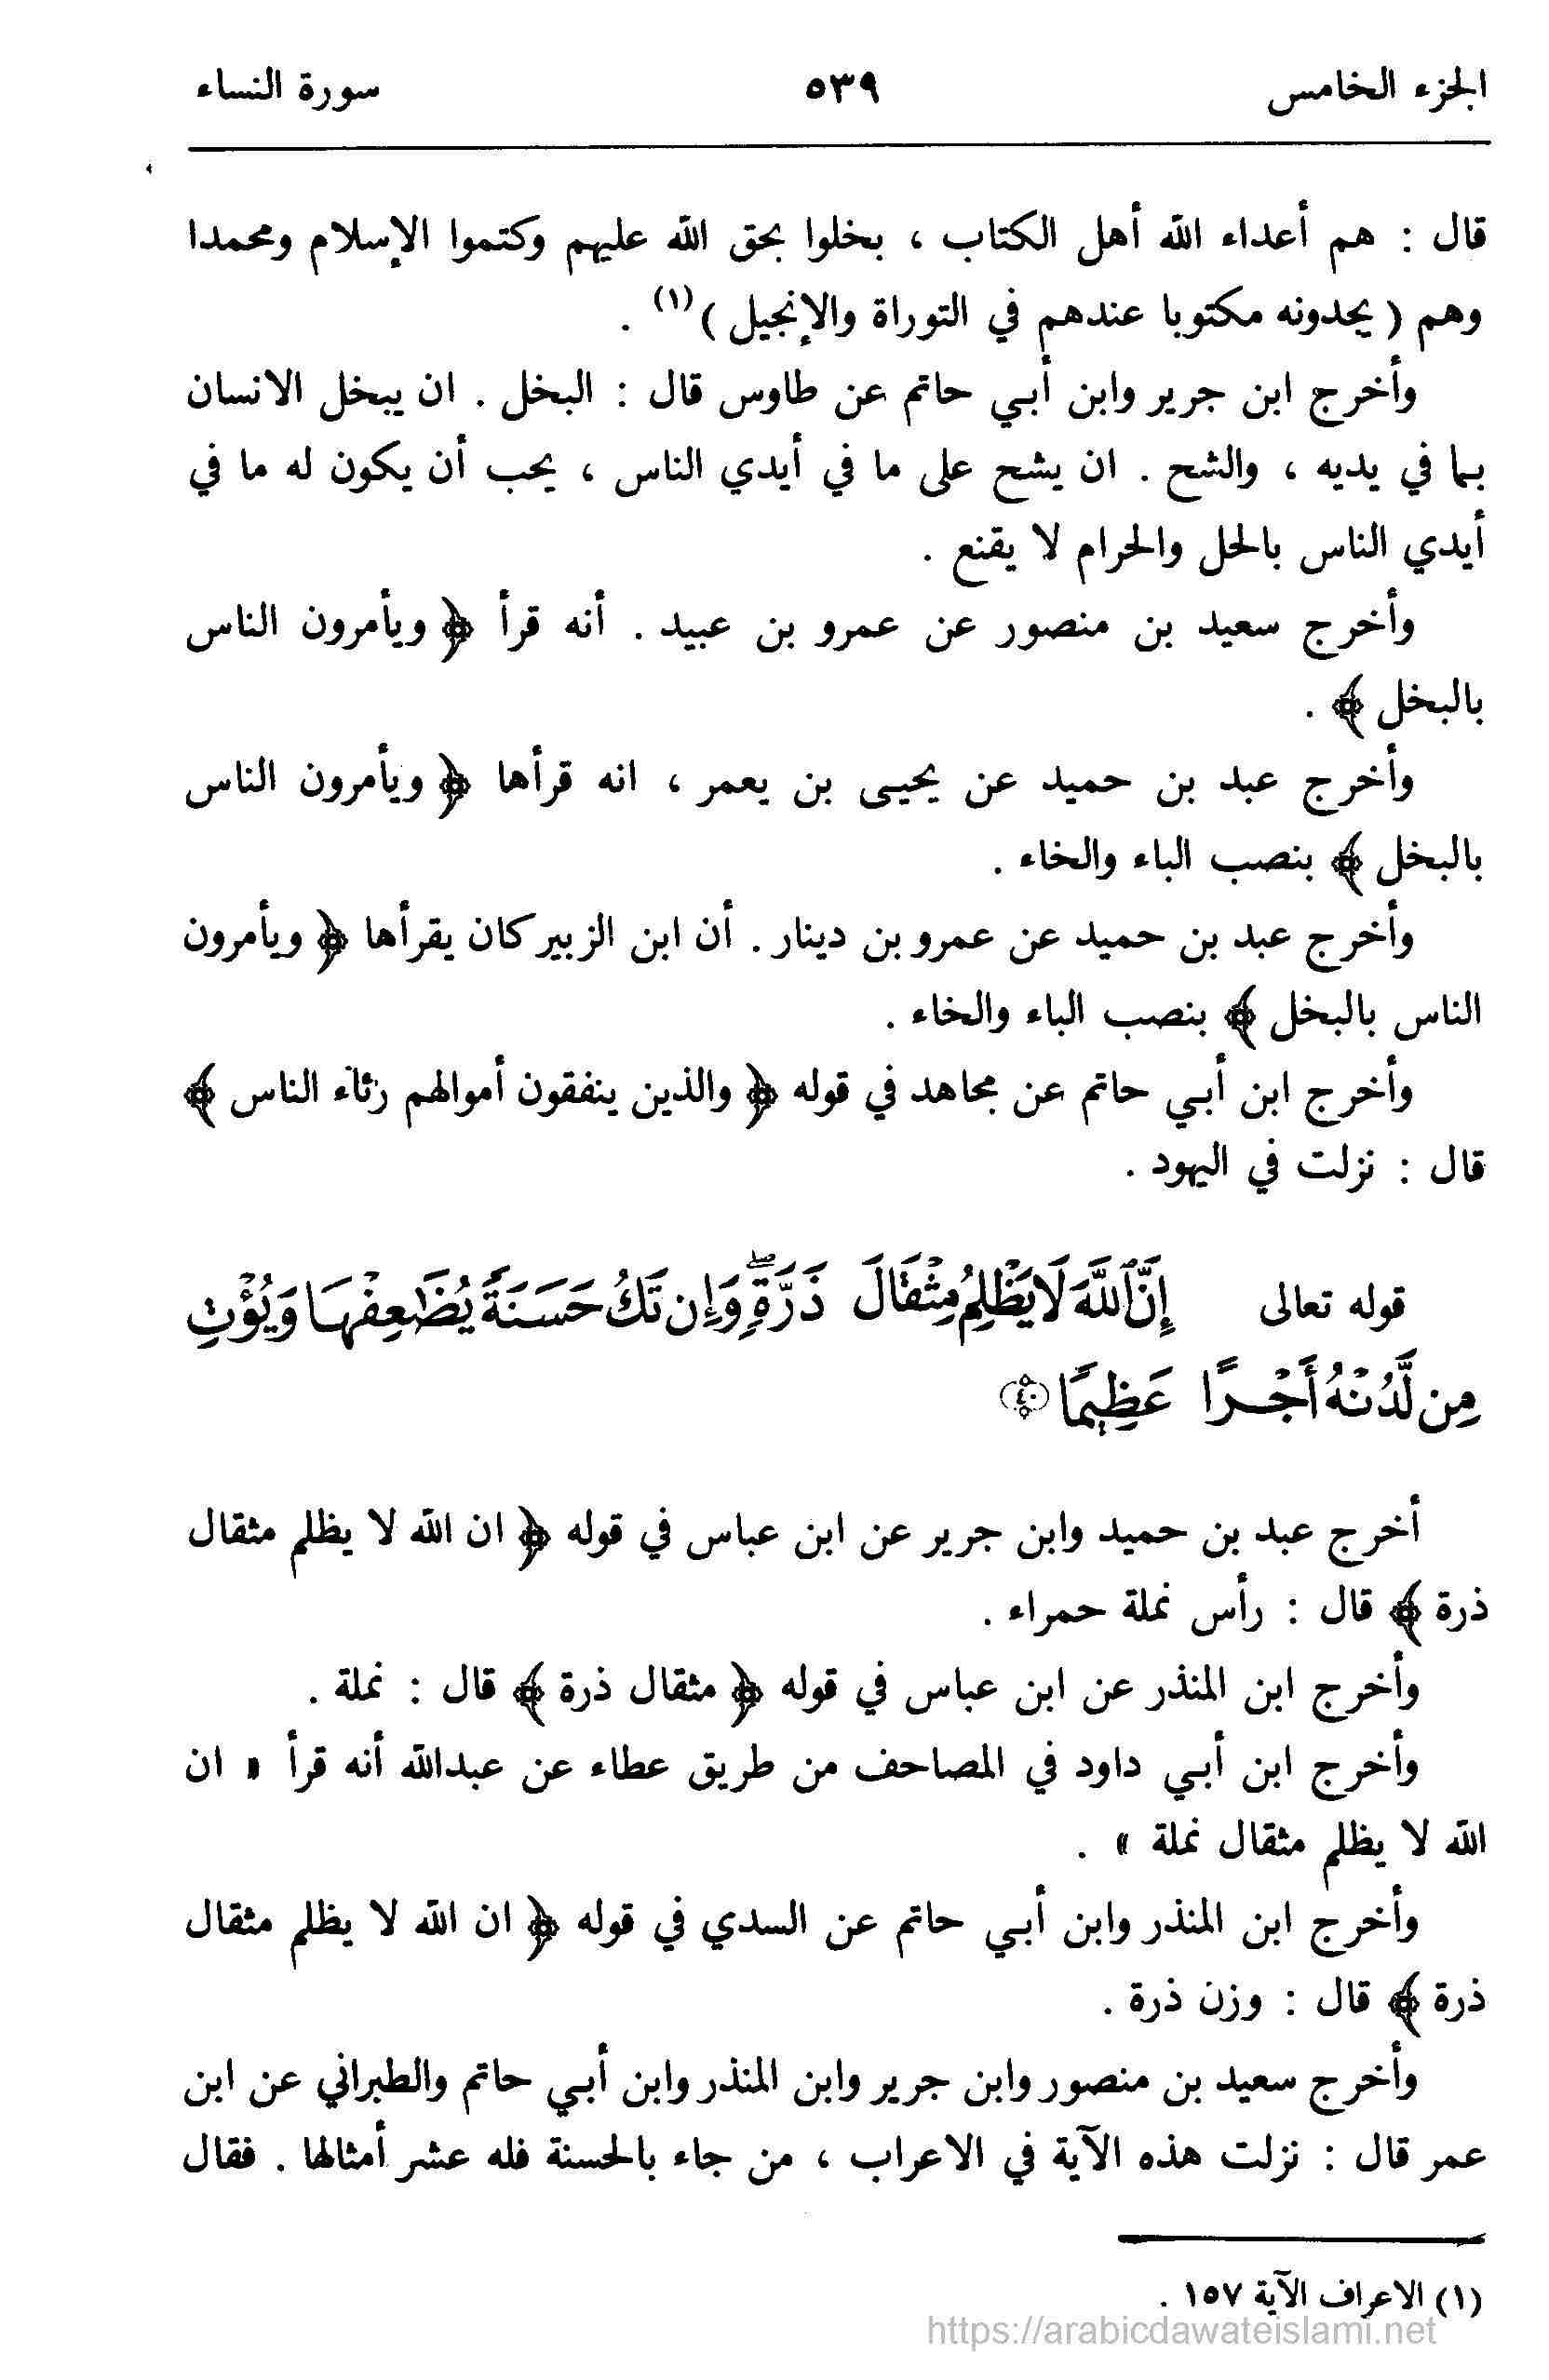 الجزء الخامس ٥٣٩ سورة النساء
قال : هم أعداء الله أهل الكتاب ، بخلوا بحق الله عليهم وكتموا الإسلام ومحمدا
وهم ( يجدونه مكتوبا عندهم في التوراة والإنجيل )(١) .
وأخرج ابن جرير وابن أبي حاتم عن طاوس قال : البخل . ان يبخل الانسان
بما في يديه ، والشح . ان يشح على ما في أيدي الناس ، يحب أن يكون له ما في
أيدي الناس بالحل والحرام لا يقنع .
وأخرج سعيد بن منصور عن عمرو بن عبيد . أنه قرأ ﴿ ويأمرون الناس
بالبخل ﴾ .
وأخرج عبد بن حميد عن يحيى بن يعمر ، انه قرأها ﴿ ويأمرون الناس
بالبخل ﴾ بنصب الباء والخاء .
وأخرج عبد بن حميد عن عمرو بن دينار . أن ابن الزبير كان يقرأها ﴿ ويأمرون
الناس بالبخل ﴾ بنصب الباء والخاء .
وأخرج ابن أبي حاتم عن مجاهد في قوله ﴿ والذين ينفقون أموالهم رئاء الناس ﴾
قال : نزلت في اليهود .
قوله تعالى إِنَّ ٱللَّهَ لَا يَظْلِمُ مِثْقَالَ ذَرَّةٍۖ وَإِن تَكُ حَسَنَةً يُضَٰعِفْهَا وَيُؤْتِ
مِن لَّدُنْهُ أَجْرًا عَظِيمًا ٤٠
أخرج عبد بن حميد وابن جرير عن ابن عباس في قوله ﴿ ان الله لا يظلم مثقال
ذرة ﴾ قال : رأس نملة حمراء .
وأخرج ابن المنذر عن ابن عباس في قوله ﴿ مثقال ذرة ﴾ قال : نملة .
وأخرج ابن أبي داود في المصاحف من طريق عطاء عن عبدالله أنه قرأ « ان
الله لا يظلم مثقال نملة » .
وأخرج ابن المنذر وابن أبي حاتم عن السدي في قوله ﴿ ان الله لا يظلم مثقال
ذرة ﴾ قال : وزن ذرة .
وأخرج سعيد بن منصور وابن جرير وابن المنذر وابن أبي حاتم والطبراني عن ابن
عمر قال : نزلت هذه الآية في الاعراب ، من جاء بالحسنة فله عشر أمثالها . فقال
(١) الاعراف الآية ١٥٧ .
https://arabicdawateislami.net